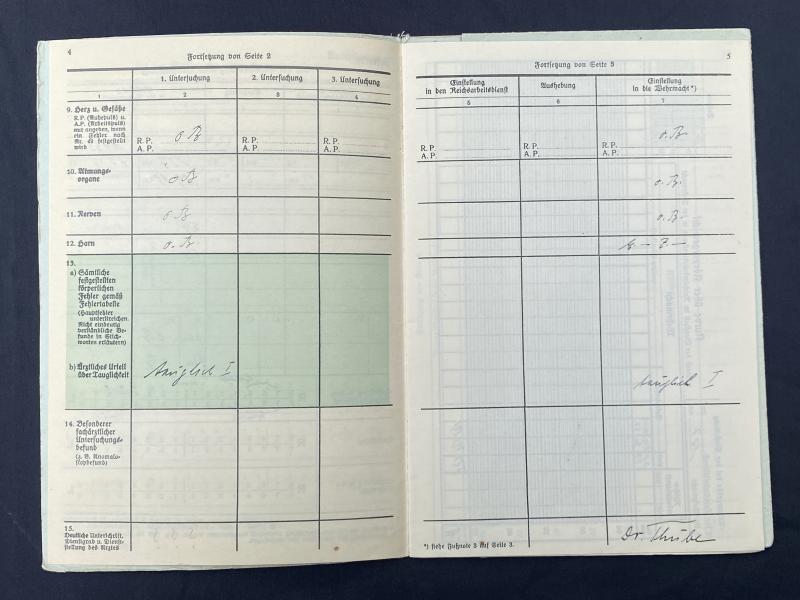 4
Fortsetzung von Seite 2
1. Untersuchung 2. Untersuchung 3. Untersuchung
1 2 3 4
9. Herz u. Gefäße
R. P. (Ruhepuls) u.
A. P. (Arbeitspuls)
nur angeben, wenn
ein Fehler nach
festgestellt
wird
o. B.
R. P. R. P. R. P.
A. P. A. P. A. P.
10. Atmungs-
organe
o. B.
11. Nerven
o. B.
12. Harn
o. B.
13.
a) Sämtliche
festgestellten
körperlichen
Fehler gemäß
Fehlertabelle
(Hauptfehler
unterstreichen.
Nicht eindeutig
verständliche Be-
funde in Stich-
worten erläutern)
b) Ärztliches Urteil
über Tauglichkeit
tauglich I
14. Besonderer
fachärztlicher
Untersuchungs-
befund
(z. B. Anomalo-
skopbefund)
15.
Deutliche Unterschrift,
Dienstgrad u. Dienst-
stellung des Arztes
5
Fortsetzung von Seite 3
Einstellung
in den Reichsarbeitsdienst
Aushebung
Einstellung
in die Wehrmacht*)
5 6 7
o. B.
R. P. R. P. R. P.
A. P. A. P. A. P.
o. B.
o. B.
tauglich I
*) siehe Fußnote 2 auf Seite 3.
Dr. Thube